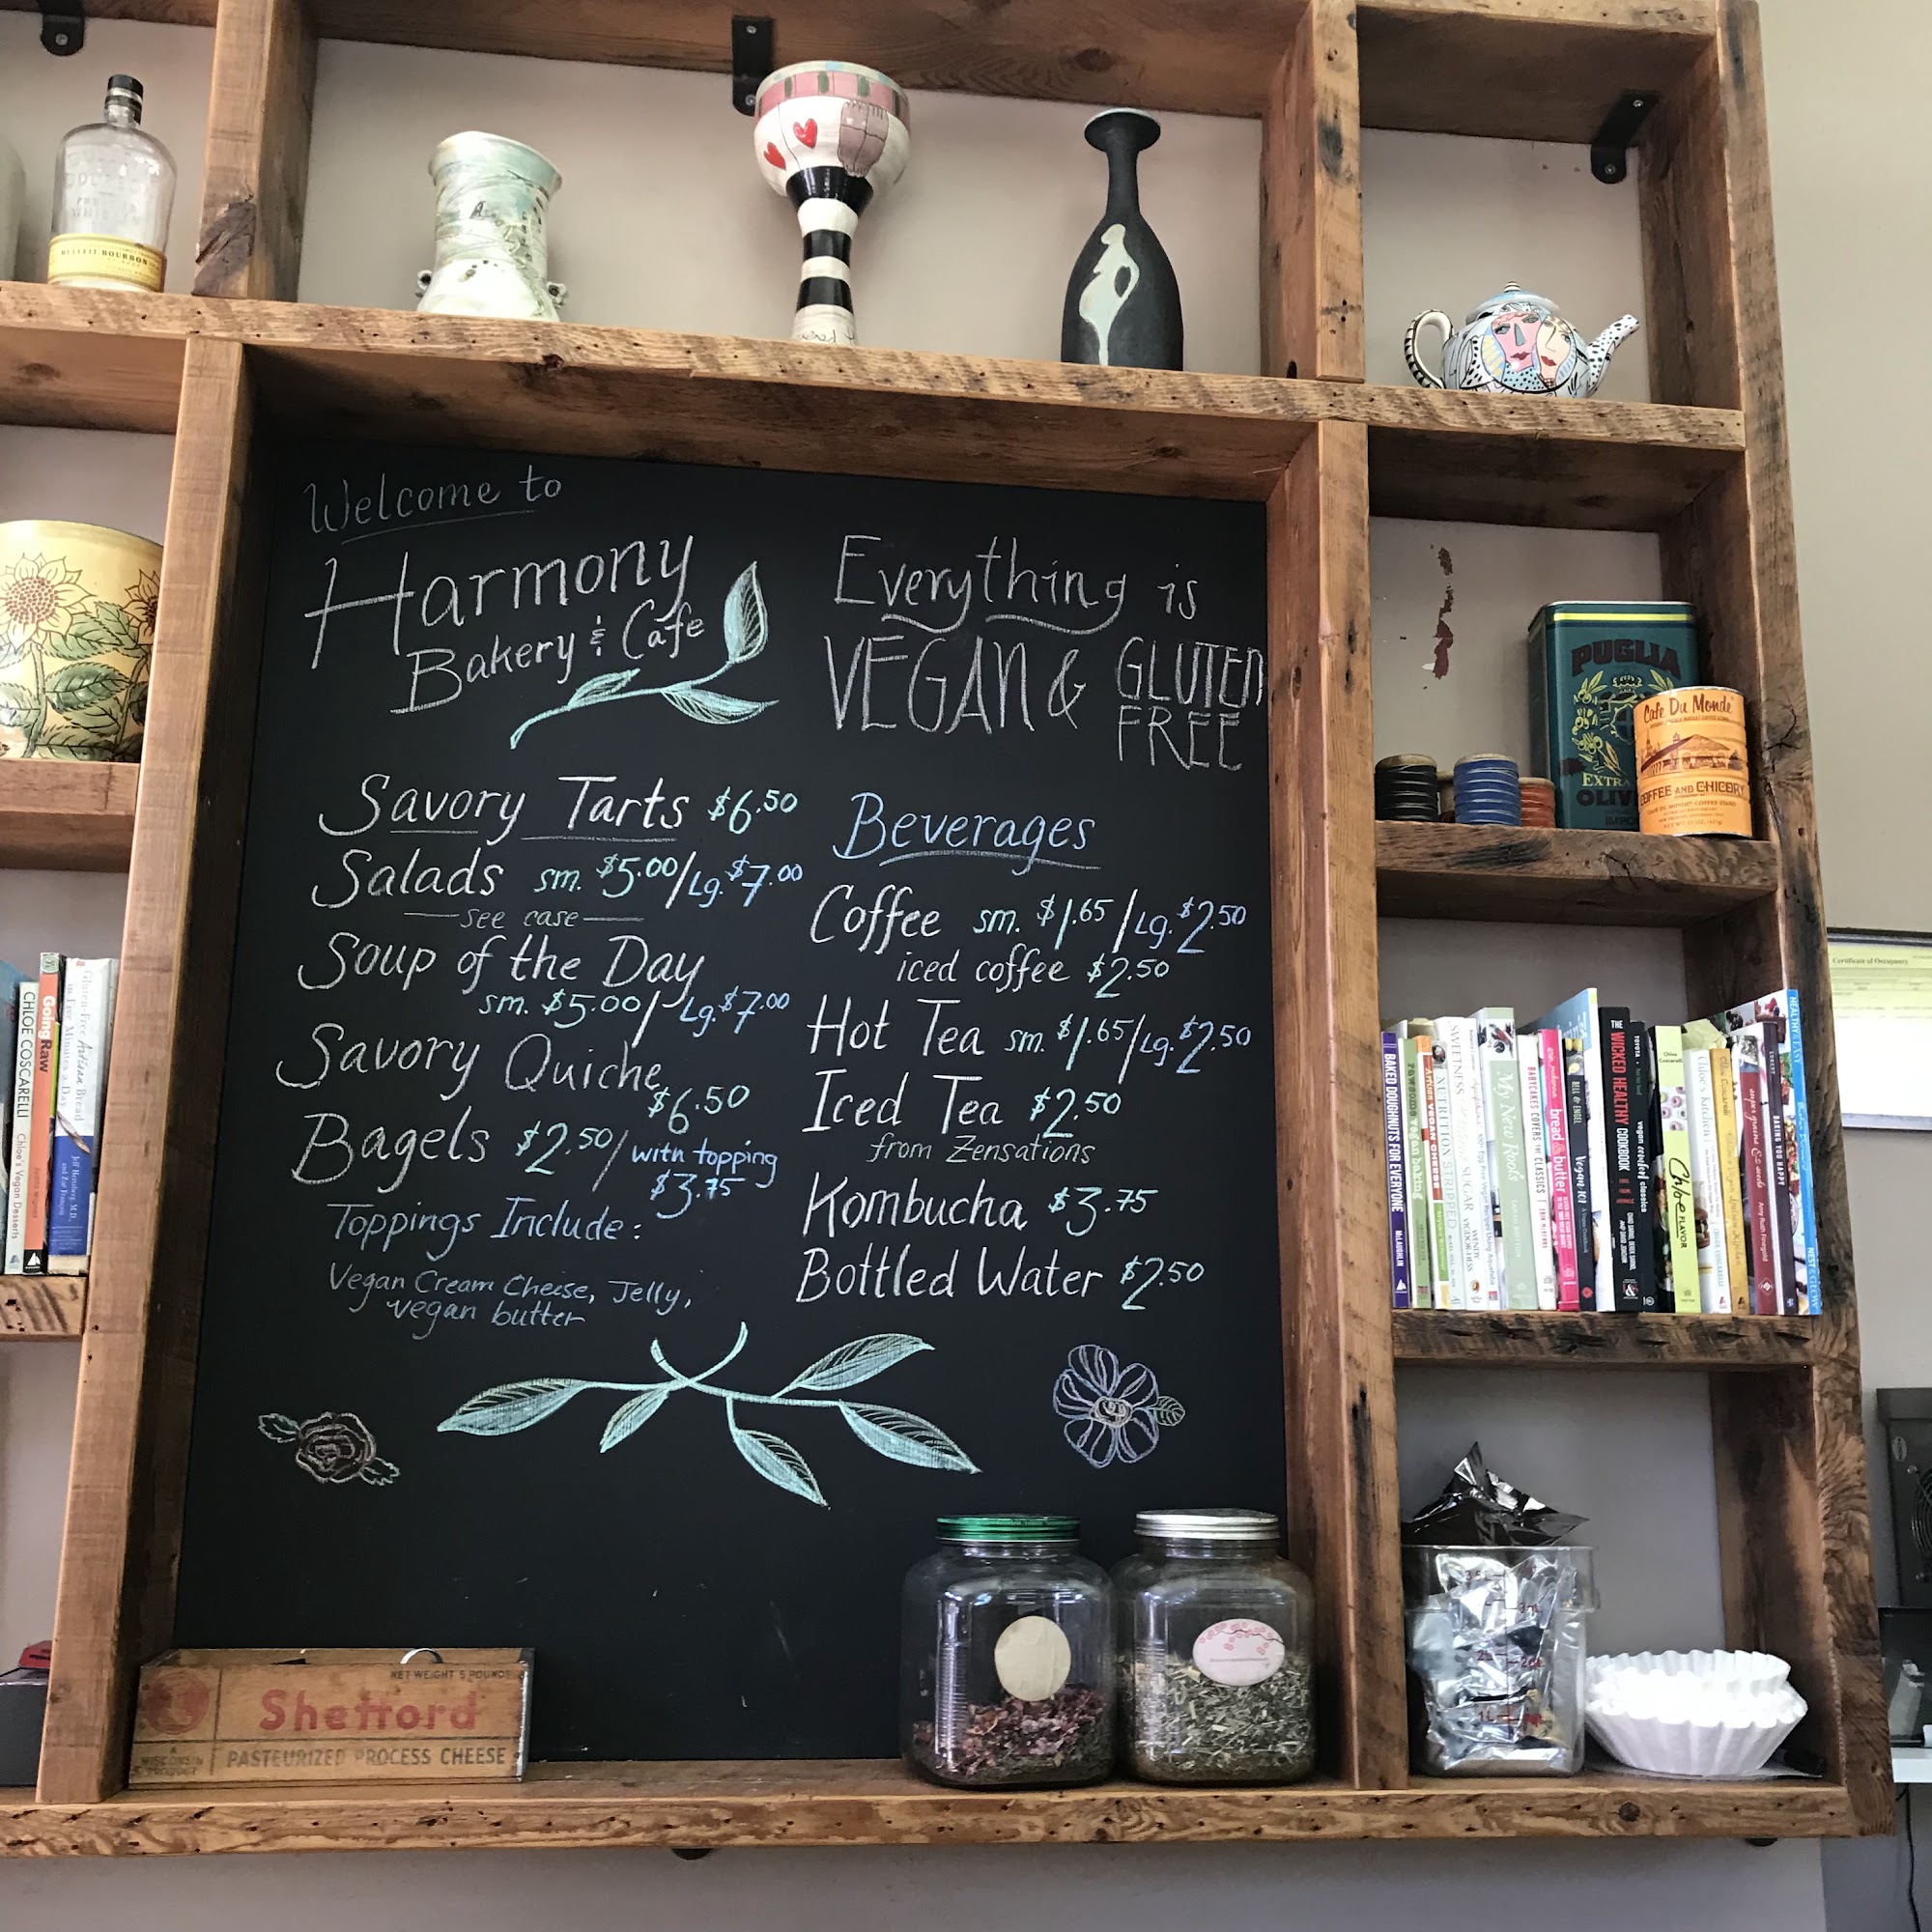 Welcome to
Harmony
Bakery & Cafe
Everything is
VEGAN & GLUTEN
FREE
Savory Tarts $6.50
Salads sm. $5.00/Lg. $7.00
—see case—
Soup of the Day
sm. $5.00/Lg. $7.00
Savory Quiche
$6.50
Bagels $2.50/with topping
$3.75
Toppings Include:
Vegan Cream Cheese, Jelly,
vegan butter
Beverages
Coffee sm. $1.65/Lg. $2.50
iced coffee $2.50
Hot Tea sm. $1.65/Lg. $2.50
Iced Tea $2.50
from Zensations
Kombucha $3.75
Bottled Water $2.50
BULLEIT BOURBON
PUGLIA
EXTRA
OLIV
Cafe Du Monde
COFFEE AND CHICORY
CHLOE COSCARELLI Chloe's Vegan Desserts
Going Raw
Gluten-Free Artisan Bread
in Five Minutes a Day
Jeff Hertzberg, M.D.
and Zoë François
BAKED DOUGHNUTS FOR EVERYONE
McLAUGHLIN
vegan baking
VEGAN CHEESE
NUTRITION STRIPPED
SWEETNESS
SUGAR
My New Roots
BABYCAKES COVERS THE CLASSICS
bread & butter
Vegan 101
THE WICKED HEALTHY COOKBOOK
vegan comfort classics
Chloe FLAVOR
Chloe's Kitchen
super grains & seeds
BAKING YOU HAPPY
HEALTHY EASY
NEST & GLOW
Certificate of Occupancy
NET WEIGHT 5 POUNDS
Shefford
A
WISCONSIN
PRODUCT
PASTEURIZED PROCESS CHEESE